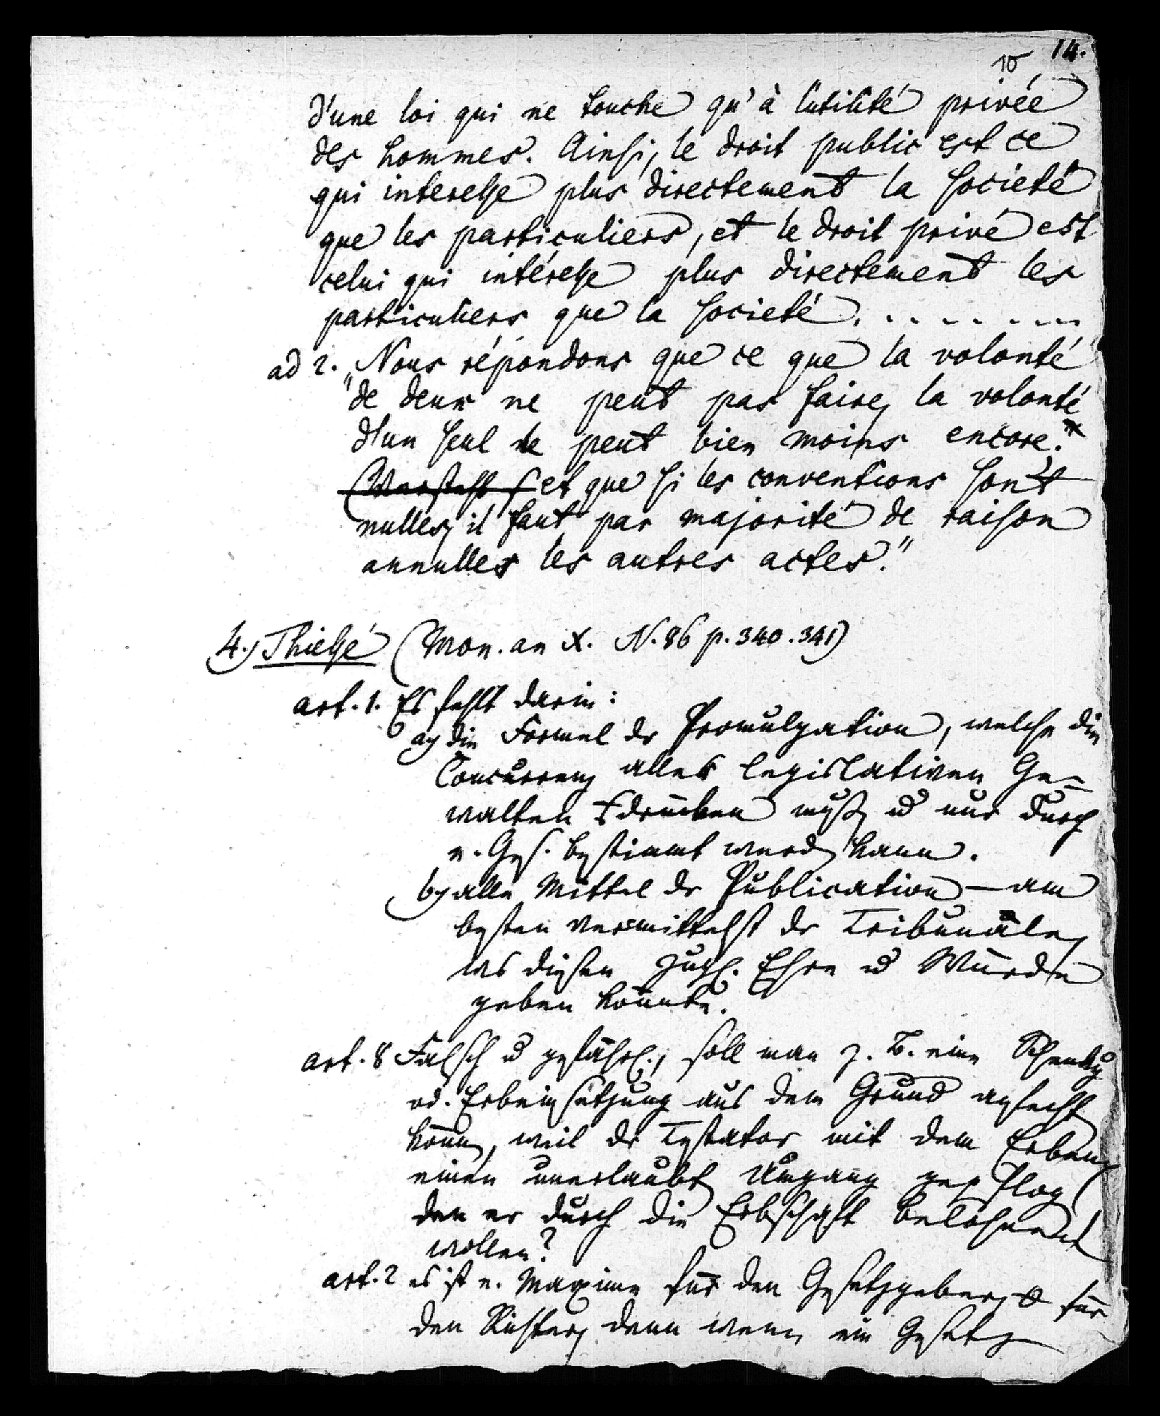 14.
10
d'une loi qui ne touche qu'à l'utilité privée
des hommes. Ainsi, le droit public est ce
qui interesse plus directement la société
que les particuliers, et le droit privé est
celui qui intéresse plus directement les
particuliers que la societé. . . . . . . .
ad 2. „Nous répondons que ce que la volonté
de deux ne peut pas faire, la volonté
d'un seul le peut bien moins encore.
et que si les conventions sont
nulles, il faut par majorité de raison
annuller les autres actes."
4.) Thiessé (Mon. an X. N. 86 p. 340. 341)
art. 1. Es fehlt darin:
a) die Formel der Promulgation, welche die
Concurrenz aller legislativen Ge-
walten ausdrücken muß, und nur durch
e. Ges. bestimmt werden kann.
b) alle Mittel der Publication — am
besten vermittelst der Tribunäle,
was diesen zugl. Ehre und Würde
geben könnte.
art. 8 Falsch und gefährl., soll man z. B. eine Schenkung
od. Erbeinsetzung aus dem Grund anfechten
können, weil der Testator mit dem Erben
einen unerlaubten Umgang gepflogen
den er durch die Erbschaft belohnen
wollen?
art. 2 es ist e. Maxime für den Gesetzgeber, für
den Richter, denn wenn ein Gesetz